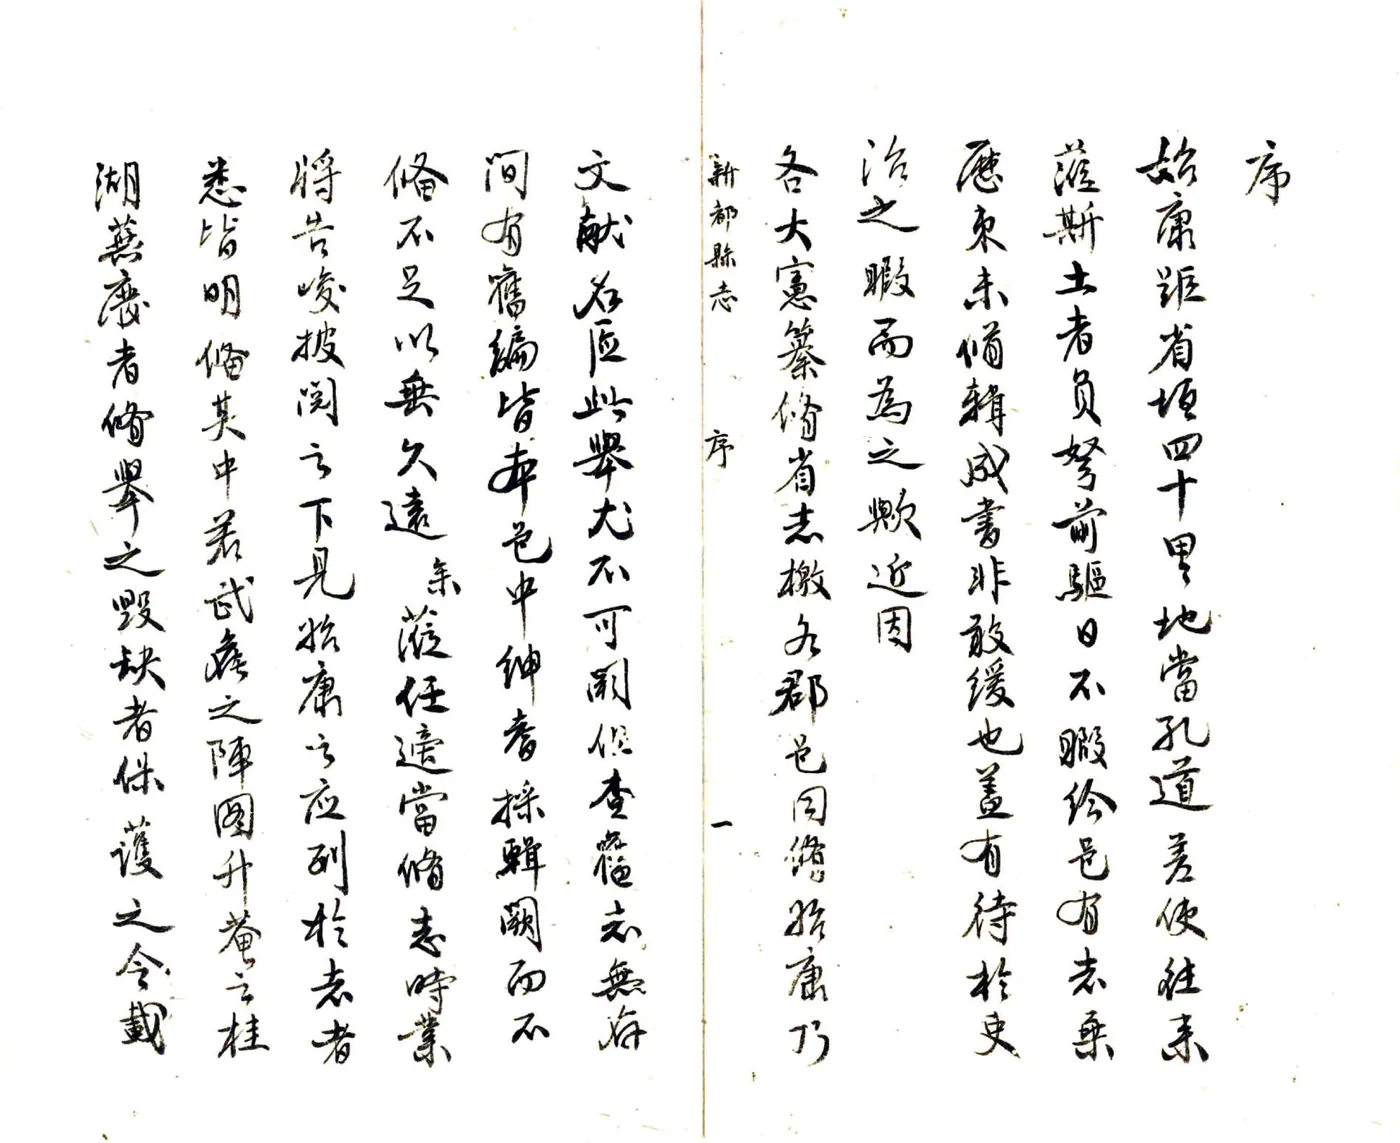 序
始康距省垣四十里地當孔道差使往来
蒞斯土者負弩前驅日不暇給邑有志乗
歷来未脩輯成書非敢緩也蓋有待於吏
治之暇而為之歟近因
各大憲纂脩省志檄各郡邑同脩始康乃
新都縣志 序 一
文献名區此舉尤不可闕但查舊志無存
间有舊編皆本邑中紳耆採輯闕而不
俻不足以垂久遠余蒞任適當脩志時業
將告峻披阅之下見始康之应列於志者
悉皆明俻其中若武矦之陣图升菴之桂
湖蕪廢者脩舉之毀缺者保護之今載